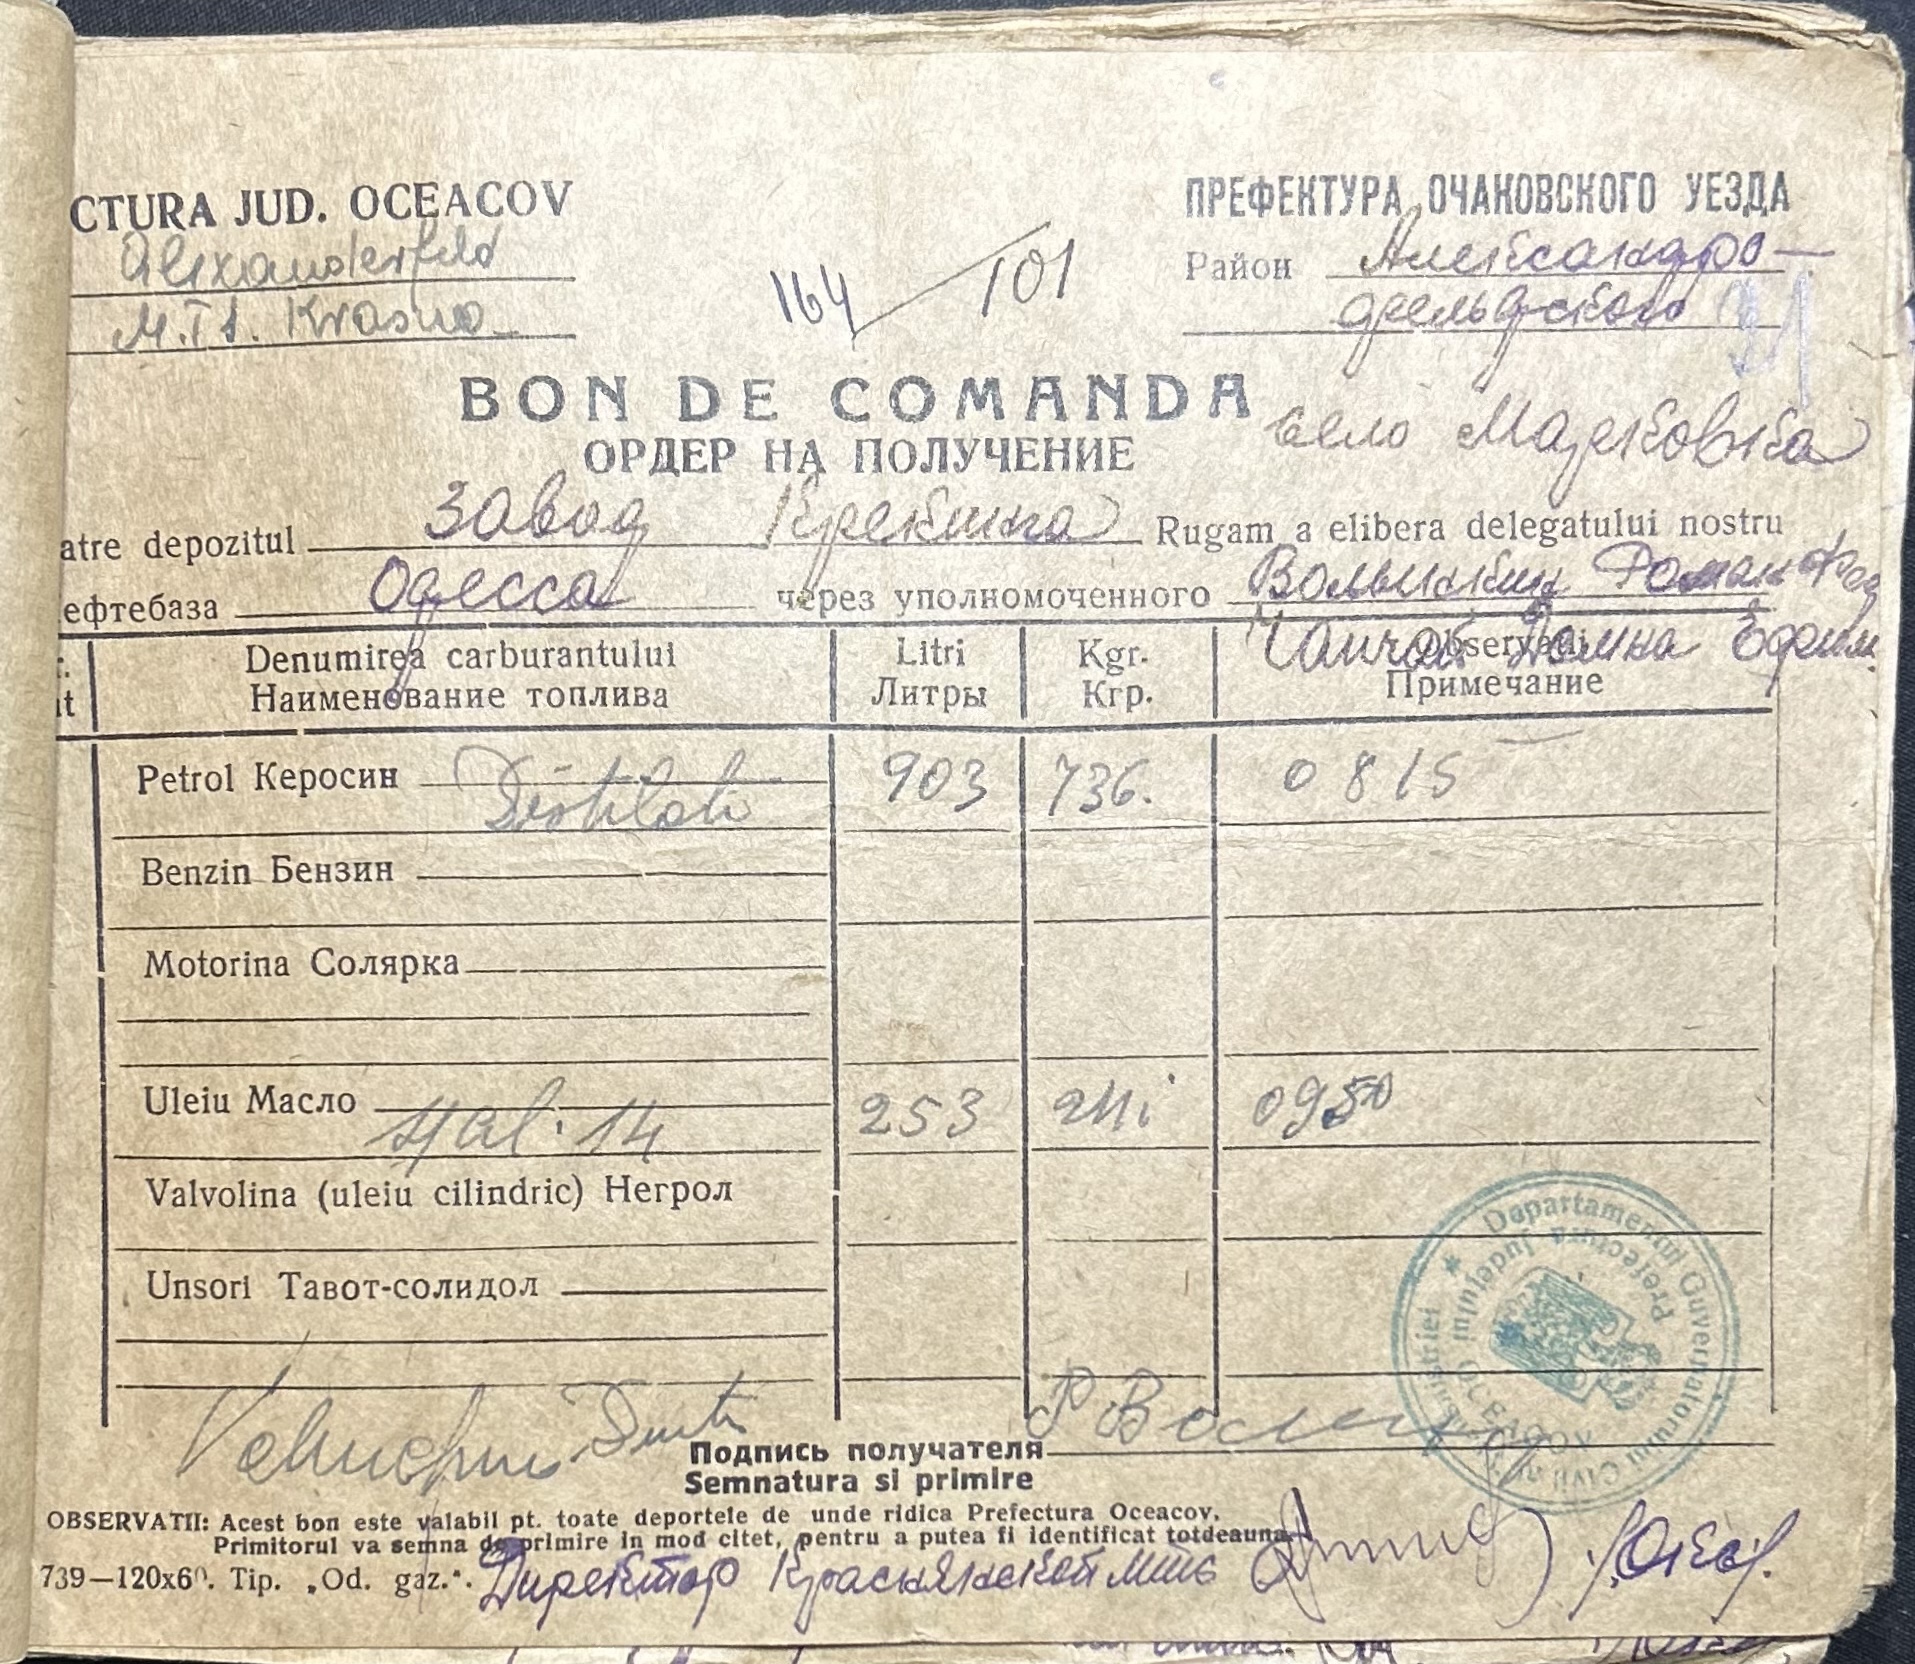 CTURA JUD. OCEACOV
ПРЕФЕКТУРА ОЧАКОВСКОГО УЕЗДА
Alexanderfeld
M.T.S. Krasna
164 / 101
Район Александро-
фельдского
BON DE COMANDA
село
ОРДЕР НА ПОЛУЧЕНИЕ
atre depozitul завод Крекинга Rugam a elibera delegatului nostru
ефтебаза Одесса через уполномоченного Роман
Ефим
Denumirea carburantului Litri Kgr. Observatii
Наименование топлива Литры Кгр. Примечание
Petrol Керосин Distilat 903 736. 0815
Benzin Бензин
Motorina Солярка
Uleiu Масло 14 253 241 0950
Valvolina (uleiu cilindric) Негрол
Unsori Тавот-солидол
Departamentul Guvernatorului Civil
Prefectura Judetului OCEACOV
Подпись получателя
Semnatura si primire
OBSERVATII: Acest bon este valabil pt. toate deportele de unde ridica Prefectura Oceacov.
Primitorul va semna de primire in mod citet, pentru a putea fi identificat totdeauna.
739—120x60. Tip. „Od. gaz.“. Директор Краснянской мтс